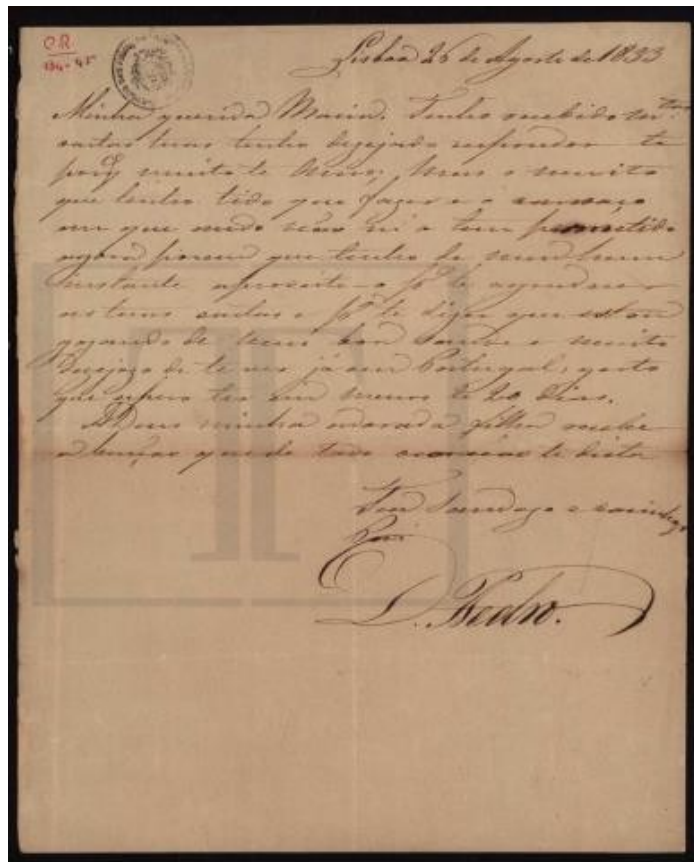 OR
194-45
Lisboa 26 de Agosto de 1833
Minha querida Maria. Tenho recebido
cartas tuas tenho dezejado responder te
porq muito te Amo; Mas o muito
que tenho tido que fazer e o cansaço
em que ando não m'o tem permettido
agora porem que tenho hum
instante aproveito-o pa te agradecer
as tuas cartas e pa te dizer que estou
gozando de boa saude e muito
dezejozo de te ver já em Portugal, gosto
que espero ter em menos de 20 dias.
ADeus minha adorada filha recebe
a benção que de todo coração te deita
Teu Saudozo e carinhozo
Pai
D. Pedro.